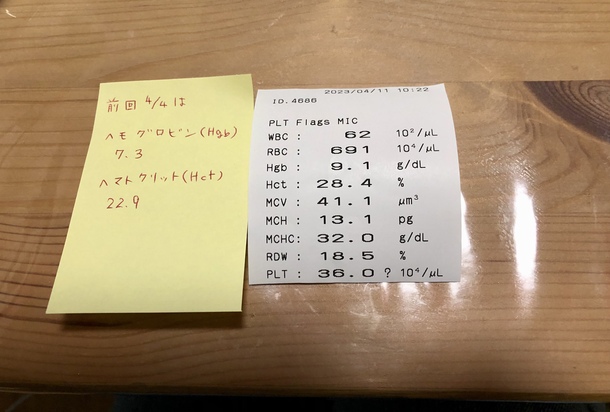 前回 4/4は
ヘモグロビン(Hgb)
7.3
ヘマトクリット(Hct)
22.9
2023/04/11 10:22
ID.4686
PLT Flags MIC
WBC : 62 10²/μL
RBC : 691 10⁴/μL
Hgb : 9.1 g/dL
Hct : 28.4 %
MCV : 41.1 μm³
MCH : 13.1 pg
MCHC: 32.0 g/dL
RDW : 18.5 %
PLT : 36.0 ? 10⁴/μL